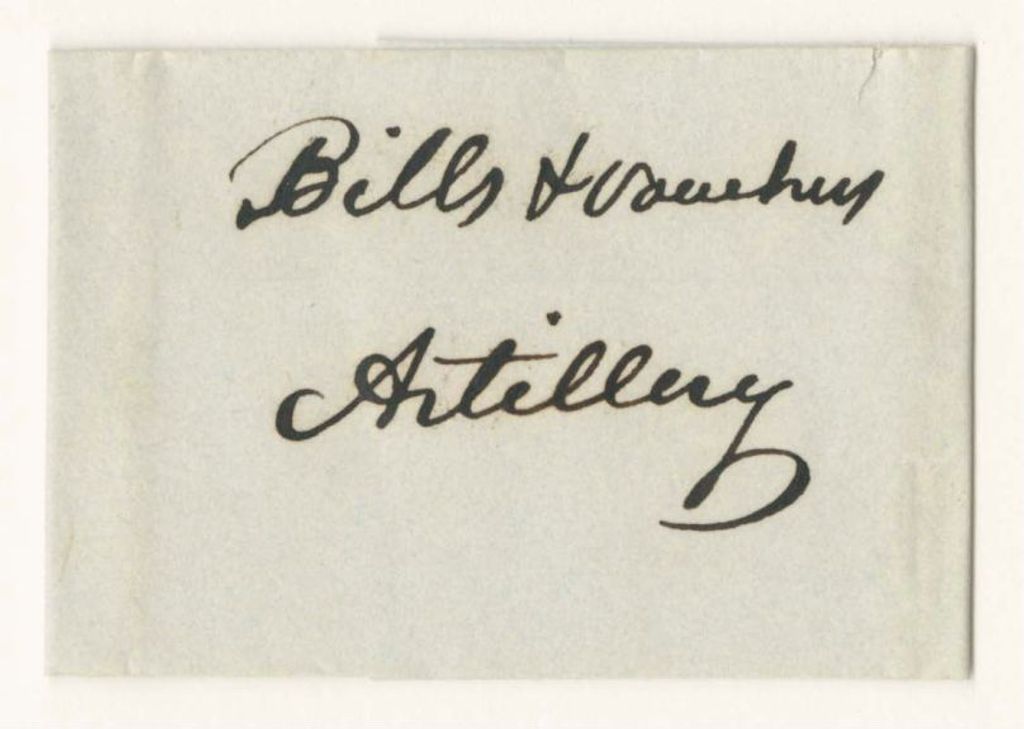 Bills & vouchers
Artillery